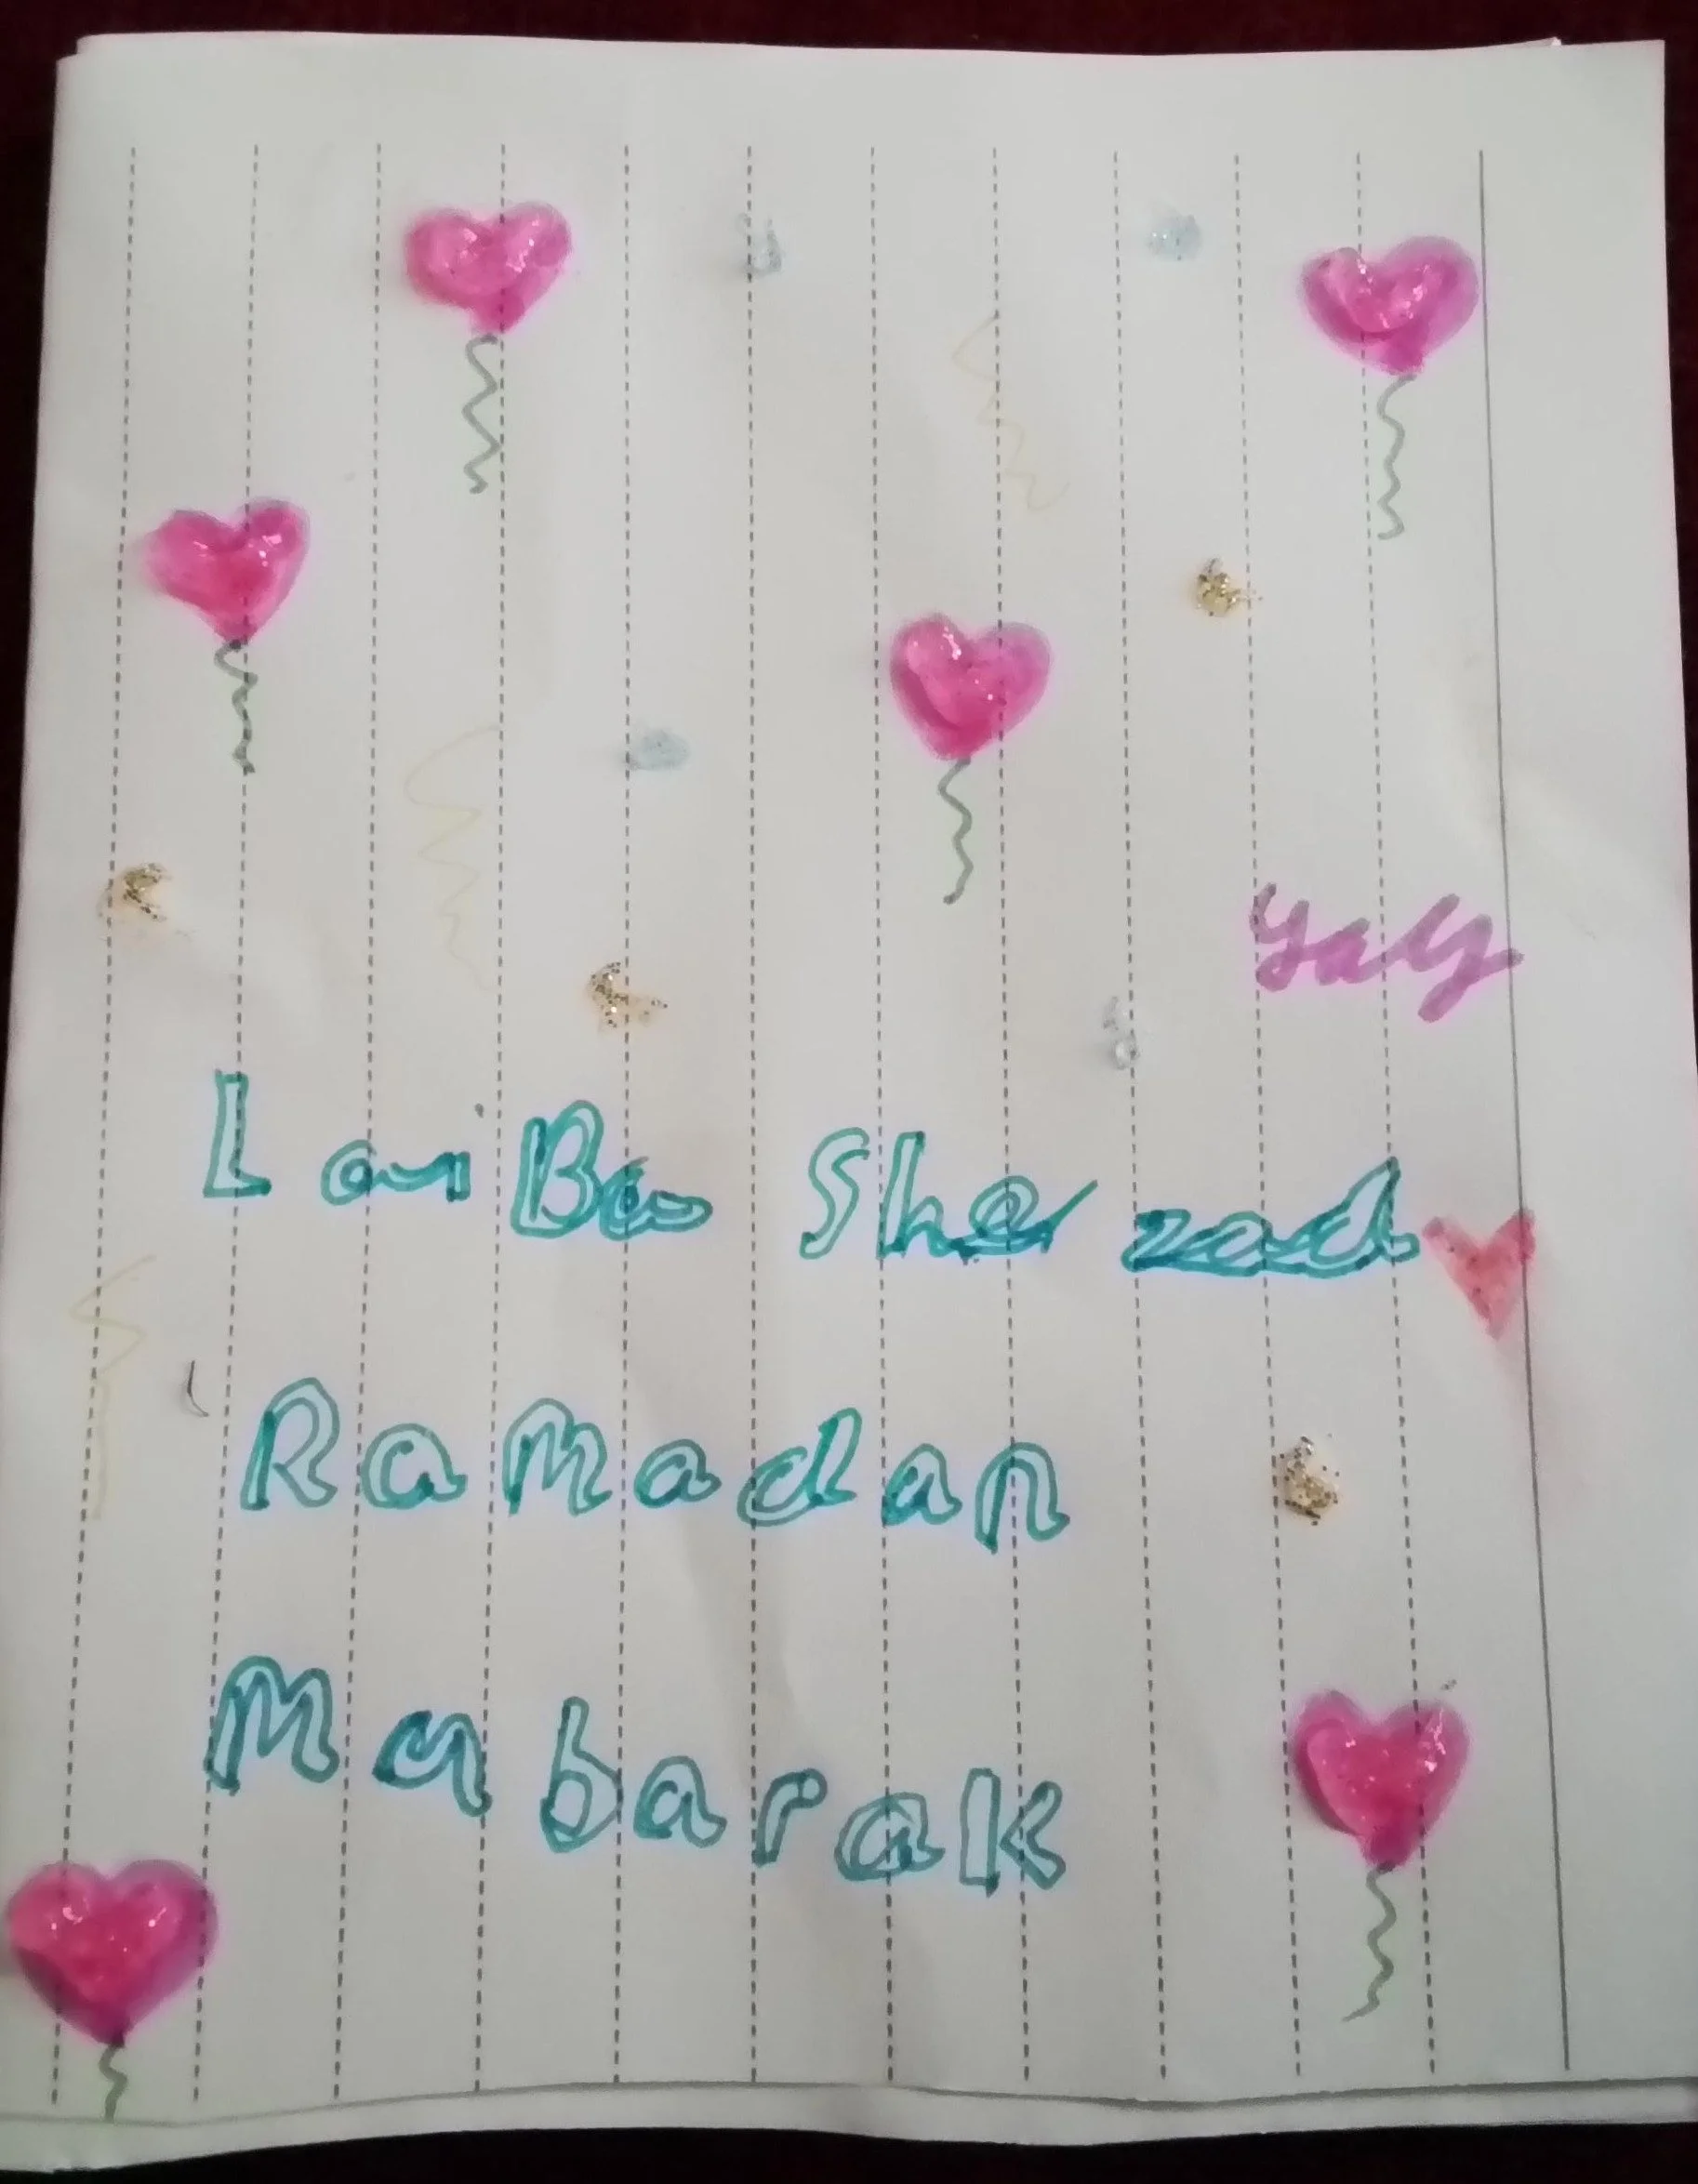 yay
LaiBa Shezad
Ramadan
Mabarak